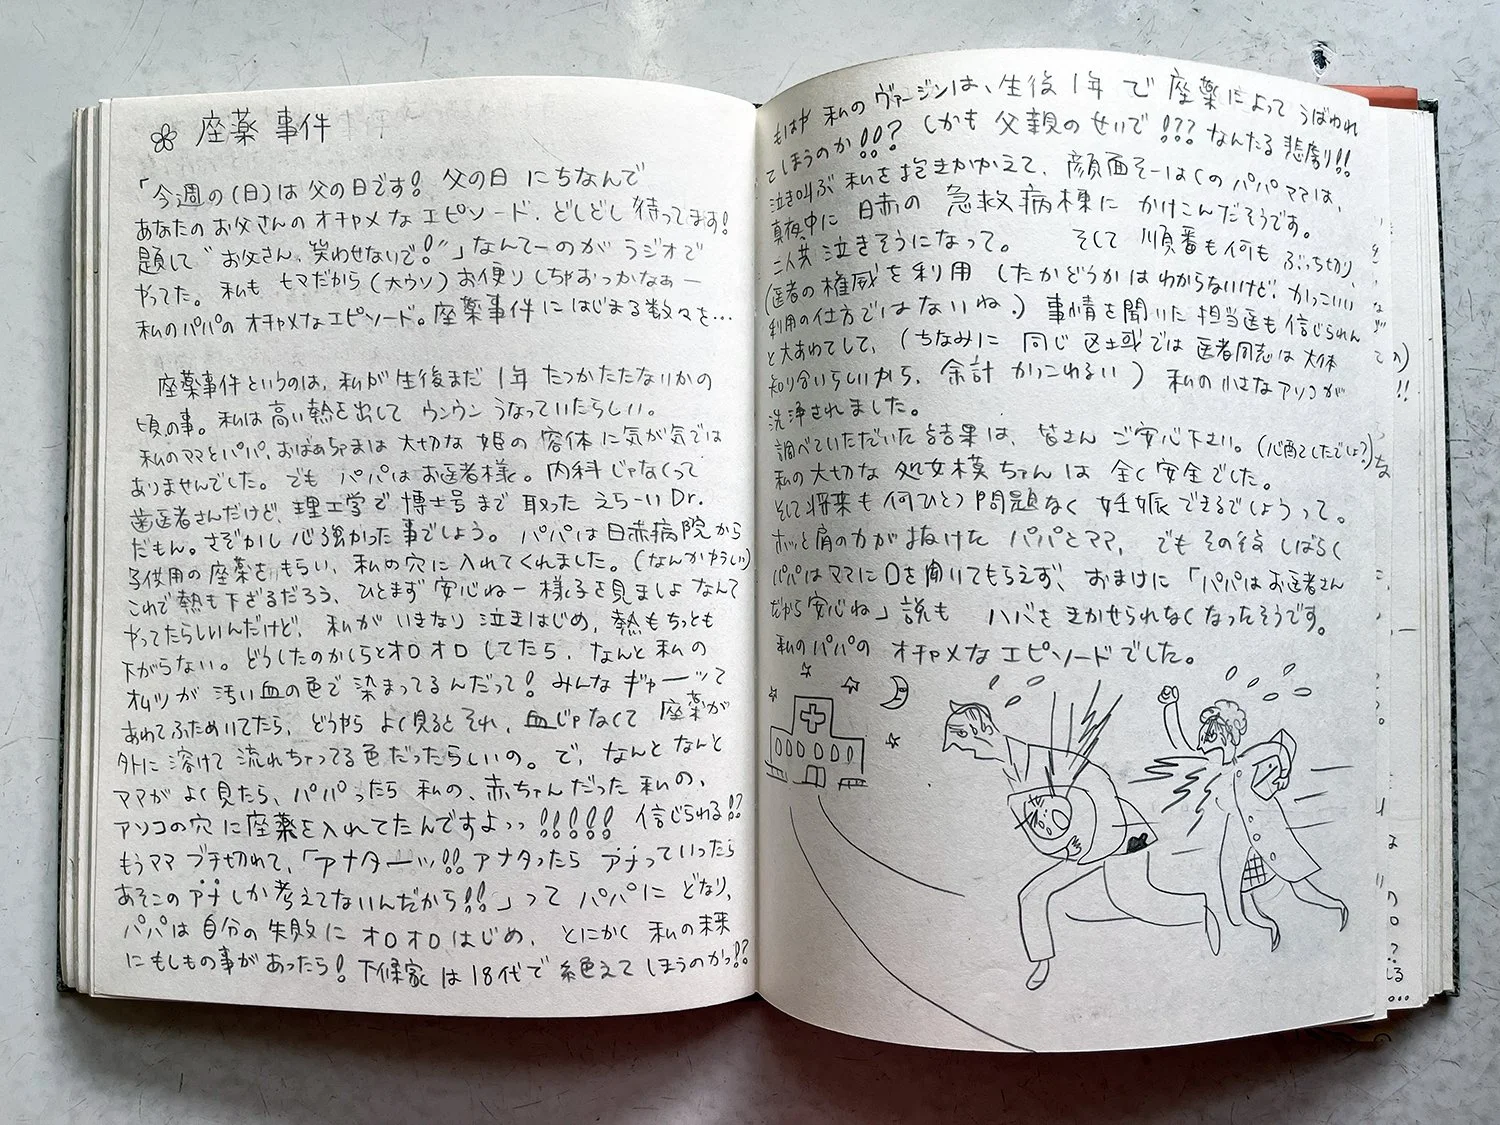 座薬事件
「今週の(日)は父の日です! 父の日 にちなんで
あなたのお父さんのオチャメなエピソード、どしどし待ってます!
題して“お父さん、笑わせないで!”」なんてーのがラジオで
やってた。私もヒマだから(大ウソ)お便りしちゃおっかなぁー
私のパパのオチャメなエピソード。座薬事件にはじまる数々を…
座薬事件というのは、私が生後まだ1年たつかたたないかの
頃の事。私は高い熱を出してウンウンうなっていたらしい。
私のママとパパ、おばあちゃまは大切な姫の容体に気が気では
ありませんでした。でもパパはお医者様。内科じゃなくって
歯医者さんだけど、理工学で博士号まで取ったえらーいDr.
だもん。さぞかし心強かった事でしょう。パパは日赤病院から
子供用の座薬をもらい、私の穴に入れてくれました。(なんかやらしい)
これで熱も下がるだろう、ひとまず安心ねー様子を見ましょなんて
やってたらしいんだけど、私がいきなり泣きはじめ、熱もちっとも
下がらない。どうしたのかしらとオロオロしてたら、なんと私の
オムツが汚い血の色で染まってるんだって! みんなギャーッて
あわてふためいてたら、どうやらよく見るとそれ、血じゃなくて座薬が
外に溶けて流れちゃってる色だったらしいの。で、なんとなんと
ママがよく見たら、パパったら私の、赤ちゃんだった私の、
アソコの穴に座薬を入れてたんですよっっ!!!!! 信じられる!?
もうママブチ切れて、「アナターッ!! アナタったらアナっていったら
あそこのアナしか考えてないんだから!!」ってパパにどなり、
パパは自分の失敗にオロオロはじめ、とにかく私の未来
にもしもの事があったら! 下條家は18代で絶えてしまうのかっ!?
もはや私のヴァージンは、生後1年で座薬によってうばわれ
てしまうのか!!? しかも父親のせいで!?? なんたる悲劇!!
泣き叫ぶ私を抱きかかえて、顔面そーはくのパパママは、
真夜中に日赤の急救病棟にかけこんだそうです。
二人共泣きそうになって。 そして順番も何もぶっち切り、
(医者の権威を利用(したかどうかはわからないけど、かっこいい
利用の仕方ではないね。) 事情を聞いた担当医も信じられん
と大あわてして、(ちなみに同じ区域では医者同志は大体
知り合いらしいから、余計かっこわるい) 私の小さなアソコが
洗浄されました。
調べていただいた結果は、皆さんご安心下さい。(心配したでしょ?)
私の大切な処女膜ちゃんは全く安全でした。
そして将来も何ひとつ問題なく妊娠できるでしょうって。
ホッと肩の力が抜けたパパとママ、でもその後しばらく
パパはママに口を聞いてもらえず、おまけに「パパはお医者さん
だから安心ね」説もハバをきかせられなくなったそうです。
私のパパのオチャメなエピソードでした。